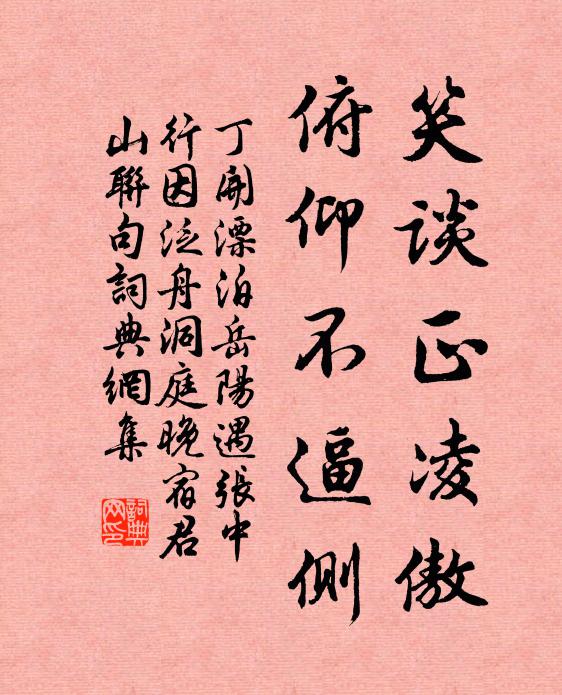 笑谈正凌傲
俯仰不逼側
丁開漂泊岳陽遇張中
行因泛舟洞庭晚宿君
山聯句詞典網集
詞典
网印